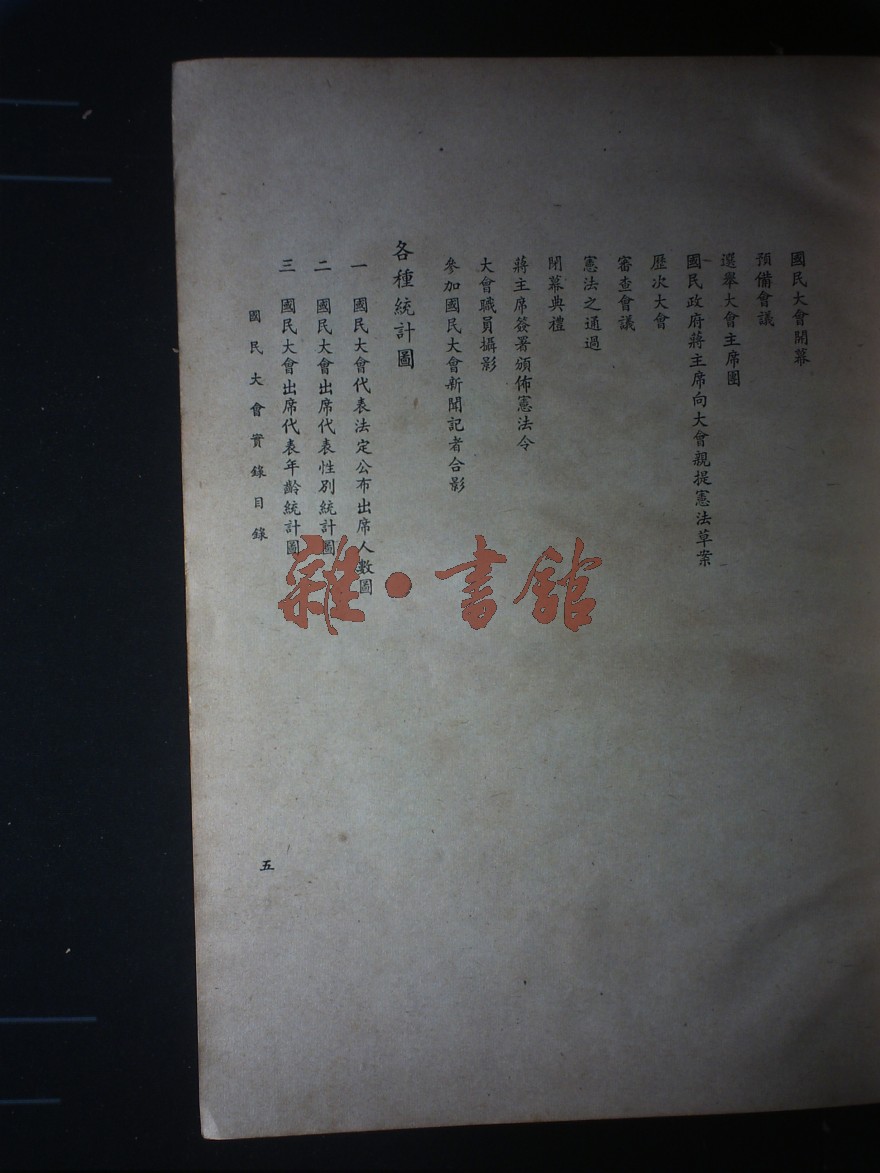 國民大會開幕
預備會議
選舉大會主席團
國民政府蔣主席向大會親提憲法草案
歷次大會
審查會議
憲法之通過
閉幕典禮
蔣主席簽署頒佈憲法令
大會職員攝影
參加國民大會新聞記者合影
各種統計圖
一　國民大會代表法定公布出席人數圖
二　國民大會出席代表性別統計圖
三　國民大會出席代表年齡統計圖
國民大會實錄目錄
五
雜·書館